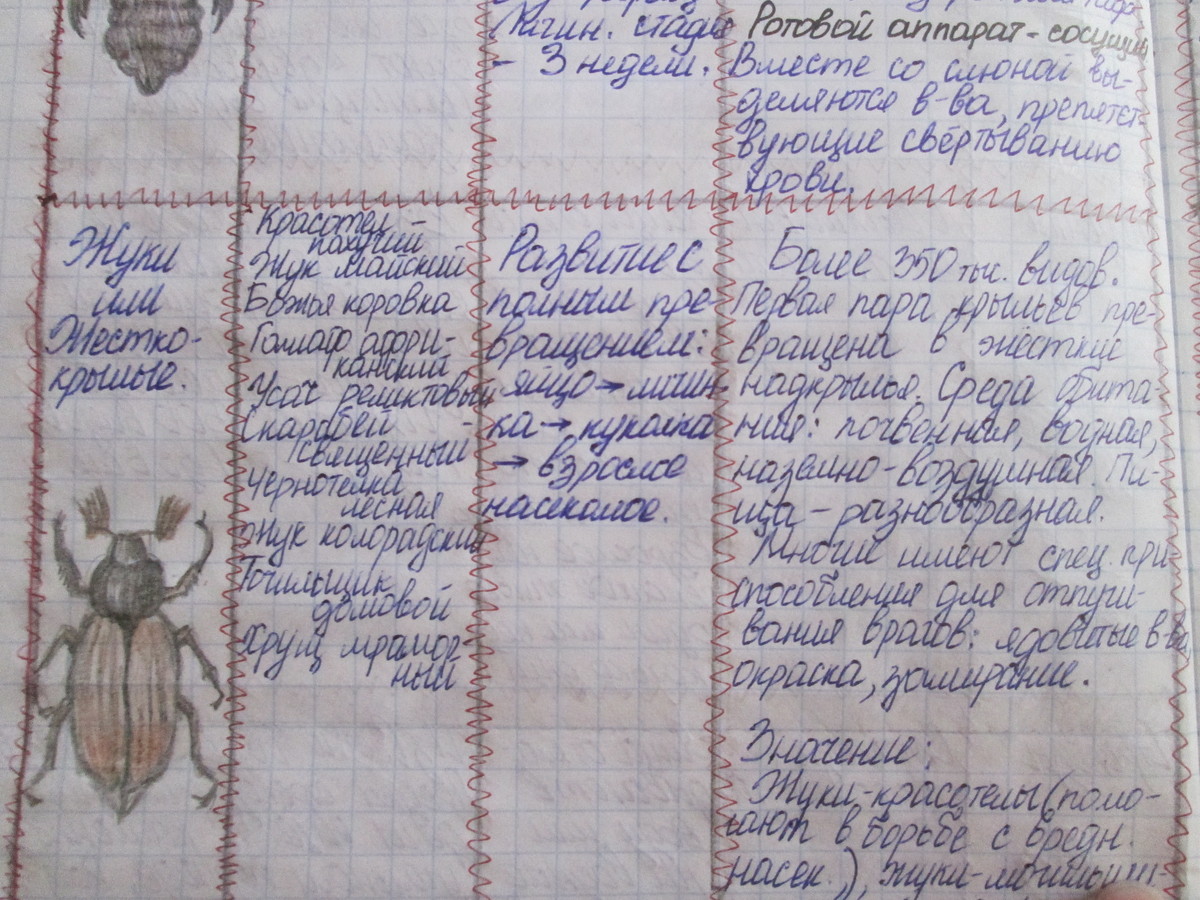 Личин. стадия
- 3 недели.
Ротовой аппарат - сосущий
Вместе со слюной вы-
деляются в-ва, препятст-
вующие свёртыванию
крови.
Жуки
или
Жестко-
крылые.
Красотел -
пахучий
Жук майский
Божья коровка
Голиаф афри-
канский
Усач реликтовый
Скарабей -
священный
Чернотелка
лесная
Жук колорадский
Точильщик
домовой
Хрущ мрамор-
ный
Развитие с
полным пре-
вращением:
яйцо → личин
ка → куколка
→ взрослое
насекомое.
Более 350 тыс. видов.
Первая пара крыльев пре-
вращена в жёсткие
надкрылья. Среда обита-
ния: почвенная, водная,
наземно-воздушная. Пи-
ща - разнообразная.
Многие имеют спец. при-
способления для отпуги-
вания врагов: ядовитые в-ва,
окраска, замирание.
Значение:
Жуки-красотелы (помо-
гают в борьбе с вредн.
насек.), жуки-могильщи-